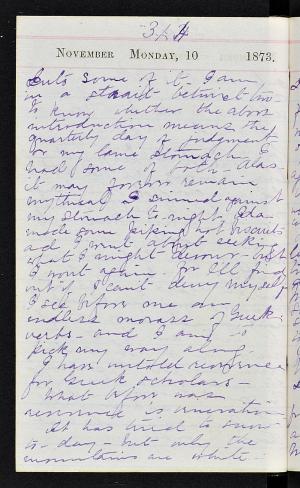 314
NOVEMBER MONDAY, 10 1873.
some of it. I am
in a strait betwixt two
to know whether the above
introduction means the
quarterly day of judgment
or my lame stomach. I
had some of both. Alas
it may forever remain
mythical. I sinned against
my stomach to-night. Ida
made some piping hot biscuits
and I went about seeking
what I might devour - but
I wont again. or I'll find
out if I can't deny myself
I see before me an
endless morass of Greek
verbs - and I am to
pick my way along.
I have untold reverence
for Greek scholars -
What before was
reverence is veneration
It has tried to snow
to-day - but only the
mountains are white -